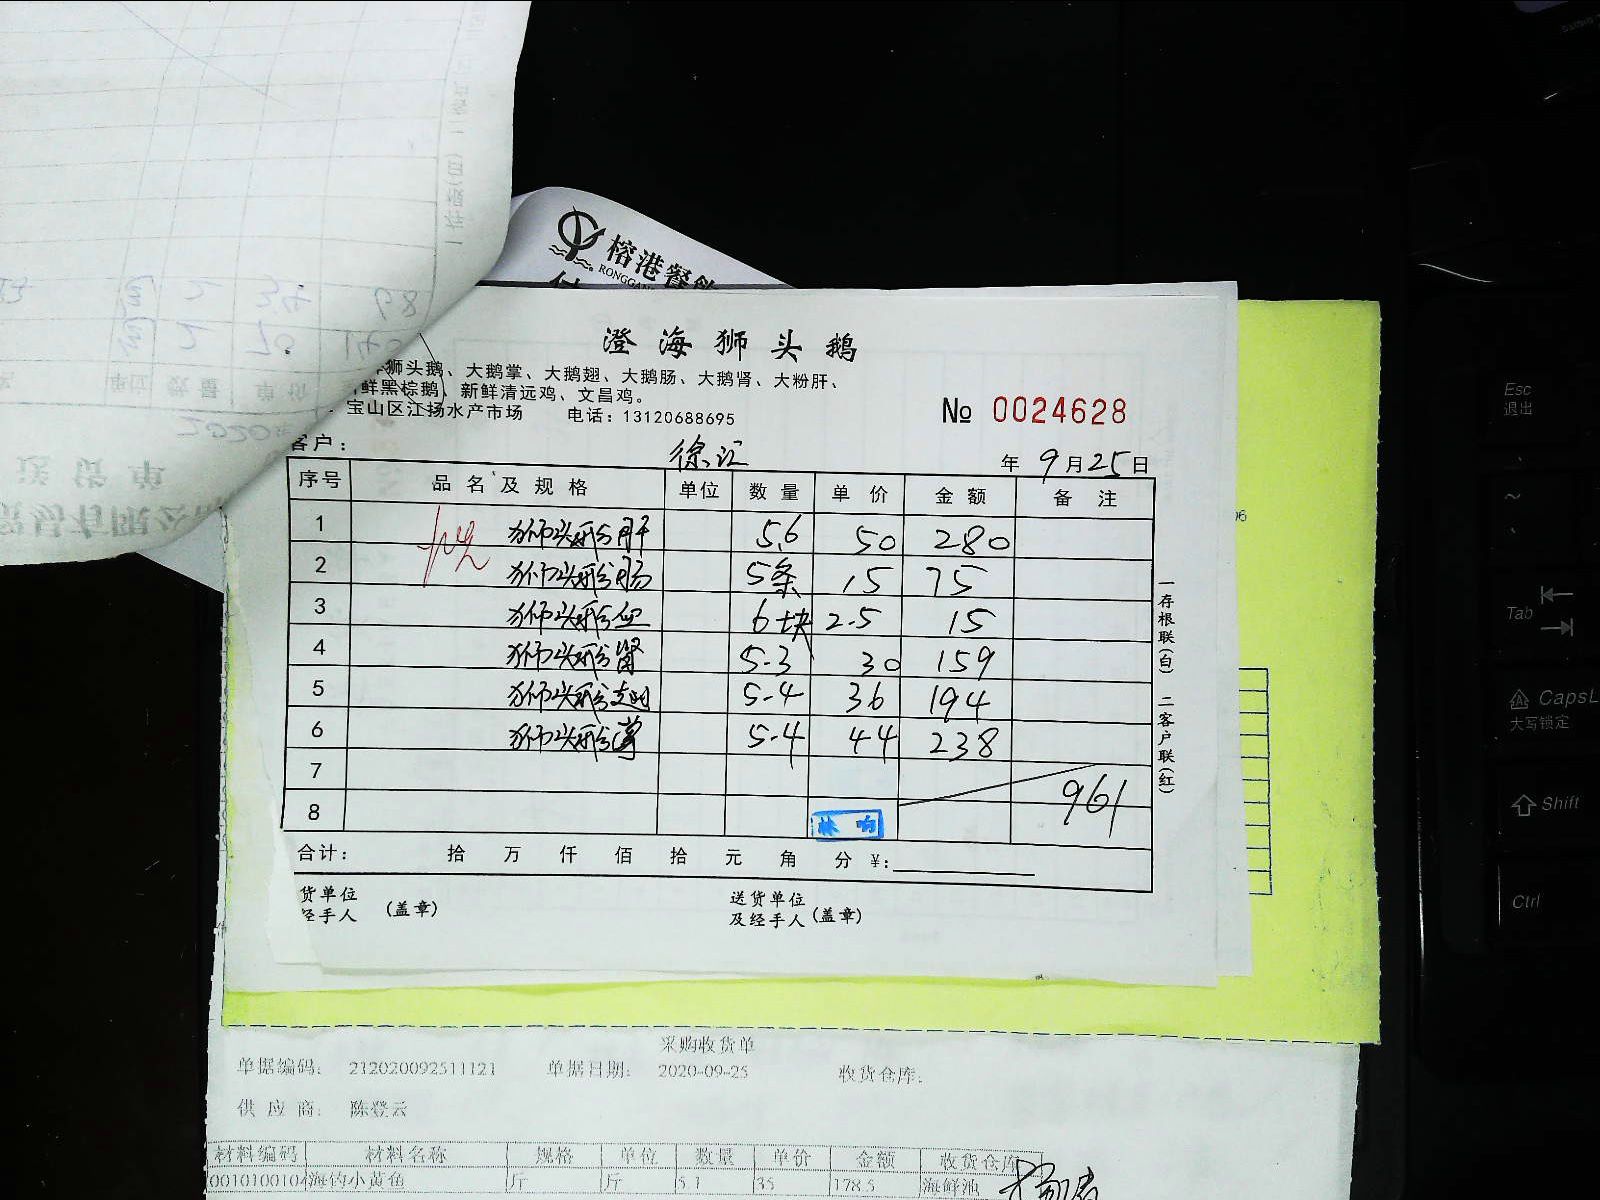 榕港餐饮
RONGGAN
澄海狮头鹅
狮头鹅、大鹅掌、大鹅翅、大鹅肠、大鹅肾、大粉肝、
鲜黑棕鹅、新鲜清远鸡、文昌鸡。
宝山区江扬水产市场 电话：13120688695
№ 0024628
客户： 徐汇 年 9月25日
序号 品名及规格 单位 数量 单价 金额 备注
1 狮头鹅肝 5.6 50 280
2 狮头鹅肠 5条 15 75
3 狮头鹅血 6块 2.5 15
4 狮头鹅肾 5.3 30 159
5 狮头鹅翅 5.4 36 194
6 狮头鹅掌 5.4 44 238
7
8 961
林响
合计： 拾 万 仟 佰 拾 元 角 分 ¥：
货单位
经手人 (盖章)
送货单位
及经手人 (盖章)
一存根联(白) 二客户联(红)
采购收货单
单据编码： 212020092511121 单据日期： 2020-09-25 收货仓库：
供应商： 陈登云
材料编码 材料名称 规格 单位 数量 单价 金额 收货仓库
海钓小黄鱼 斤 斤 5.1 35 178.5 海鲜池
Esc
退出
~
Tab
CapsL
大写锁定
Shift
Ctrl